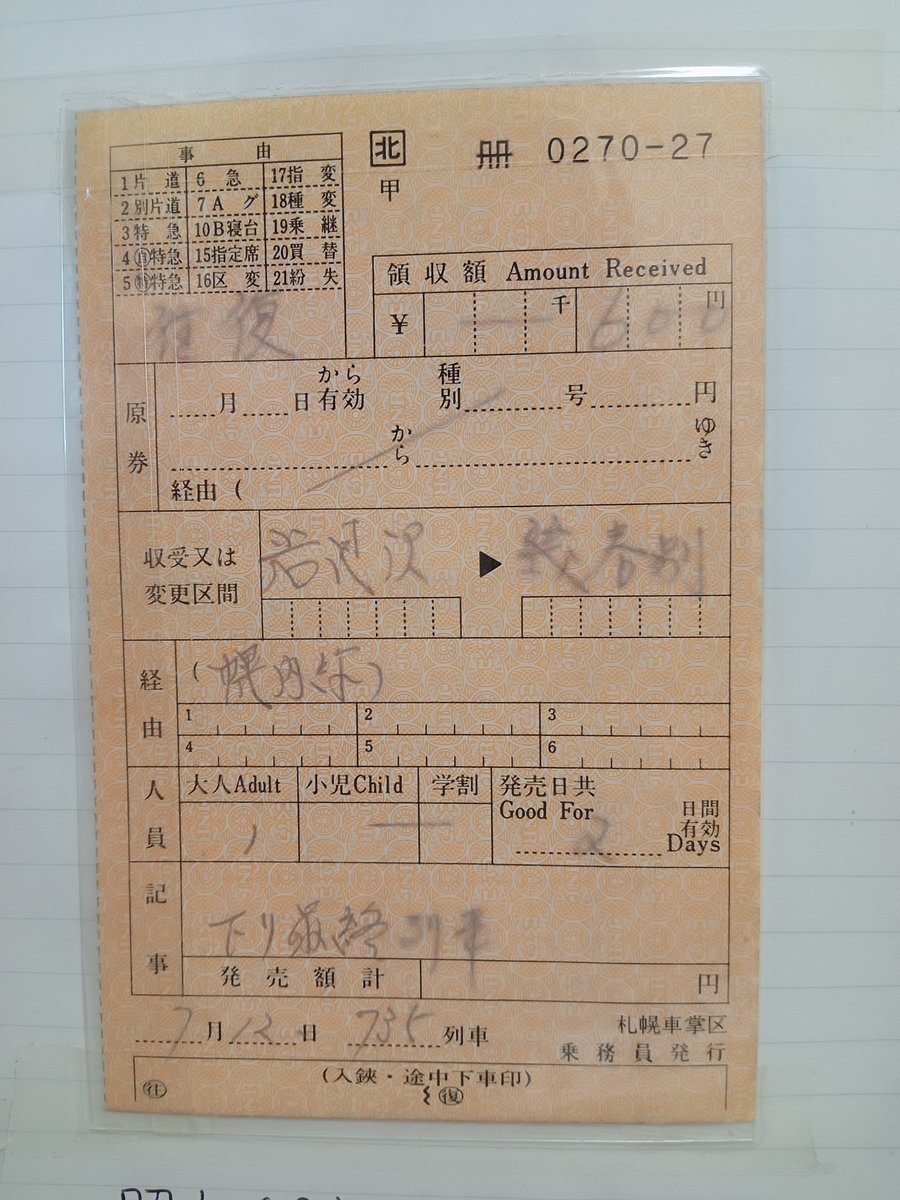 事由
1片道 6急 17指変
2別片道 7Aグ 18種変
3特急 10B寝台 19乗継
4特急 15指定席 20買替
5特急 16区変 21紛失
往復
北
甲
冊 0270-27
領収額 Amount Received
¥ 一 千 600 円
原券
月 日 から有効 種別 号 円
から ゆき
経由 (
収受又は変更区間
岩見沢 ▶ 菱春別
経由
(幌内線)
1 2 3
4 5 6
人員
大人Adult 小児Child 学割
1 一
発売日共 Good For 2 日間有効 Days
記事
下り最終列車
発売額計 円
7月13日 735列車
札幌車掌区
乗務員発行
(入鋏・途中下車印)
往 復